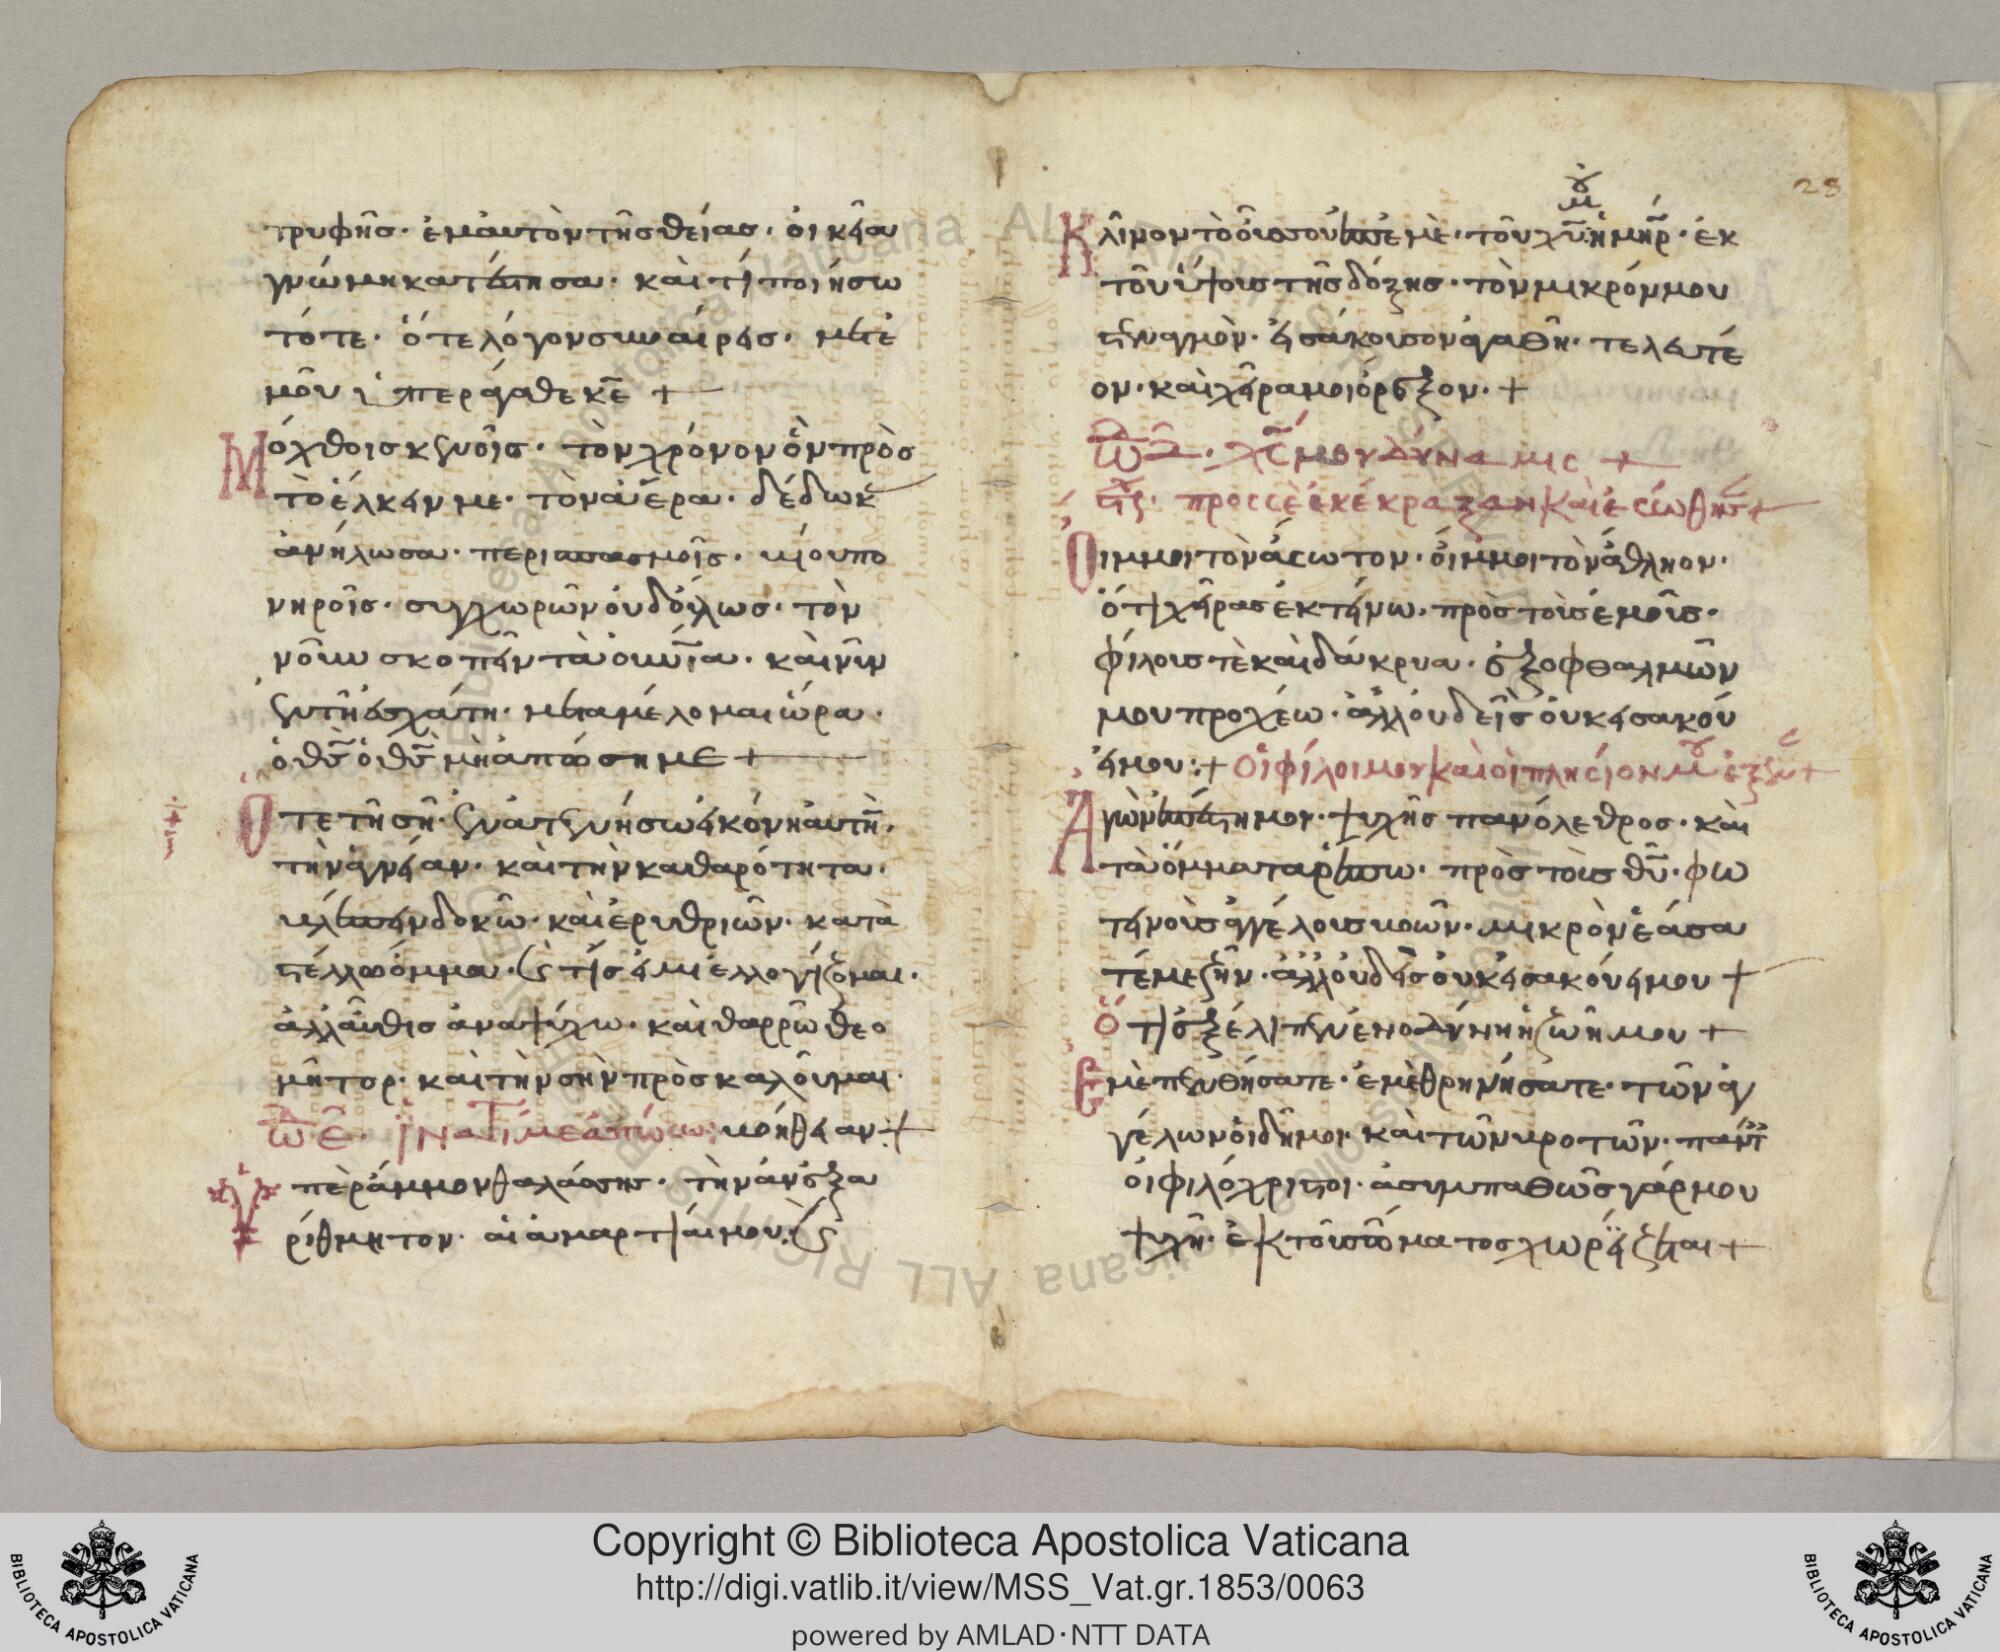 τρυφῆσ· ἐμαυτὸν τῆσ θείασ· οἰκεία
γνώμη κατέστησα· καὶ τί ποιήσω
τότε· ὅτε λόγον συναίρεισ· μετ ἐ
μοῦ ὑπεράγαθε κε +
Μόχθοισ κενοῖσ· τὸν χρόνον ὃν πρὸσ
τὸ ἕλκειν με· τὸν ἀέρα· δέδωκ
ἀνήλωσα· περισπασμοῖσ·
νηροῖσ· συγχωρῶν οὐδόλωσ· τὸν
νοῦν σκοπεῖν τὰ· καὶ νῦν
ἐν τῆ ἐσχάτη· μεταμέλομαι ὥρα·
ὁ θσ ὁ θσ μὴ ἀπώση με +
Ὅτε τῆ σῆ· ἐνατενήσω εἰκόνι ἁγνὴ·
τὴν ἁγνείαν· καὶ τὴν καθαρότητα·
βλέπειν δοκῶ· καὶ ἐρυθριῶν· κατα
στέλλω ὄμμα· ἐλλογίζομαι·
ἀλλ αὖθισ ἀναψύχω· καὶ θαρρῶ θεο
μῆτορ· καὶ τὴν σὴν προσκαλοῦμαι·
ὠδ ε· ἵνα τί με ἀπώσω· βοήθειαν +
Ὑπὲρ ἄμμον θαλάσσησ· τὴν ἀνεξα
ρίθμητον· αἱ ἁμαρτίαι μου·
28
Κλῖνον τὸ οὖσ σου ἐπ ἐμὲ· τοῦ χυ μου ἡ μηρ· ἐκ
τοῦ ὕψουσ τῆσ δόξησ· τὸν μικρόν μου
στεναγμὸν· εἰσάκουσον ἀγαθὴ· τελευτέ
ον· καὶ χεῖρα μοι ὄρεξον· +
ὠδ δ· χσ μου δύναμισ +
στιχ· πρὸσ σὲ ἐκέκραξαν καὶ ἐσώθησ +
Οἴμμοι τὸν ἄσωτον· οἴμμοι τὸν ἄθλιον·
ὅτι χεῖρασ ἐκτείνω· πρὸσ τοὺσ ἐμοὺσ·
φίλουσ τὲ καὶ δάκρυα· ἐξ ὀφθαλμῶν
μου προχέω· ἀλλ οὐδεὶσ οὐκ εἰσακού
ει μου + Οἱ φίλοι μου καὶ οἱ πλησίον μου ἐξ εν +
Ἀγὼν ἐπέστη μοι· ψυχῆσ πανόλεθροσ· καὶ
τὰ ὄμματα ρέπω· πρὸσ τοὺσ θυ· φω
τεινοὺσ ἀγγέλουσ βοῶν· μικρὸν ἐάσα
τέ με ζῆν· ἀλλ οὐδεὶσ οὐκ εἰσακούει μου +
Ὅτι ἐξέλιπεν ἐν ὀδύνη ἡ ζωή μου +
Ἐμὲ πενθήσατε· ἐμὲ θρηνήσατε· τῶν ἀγ
γέλων οἱ δῆμοι· καὶ τῶν βροτῶν· παντ
οἱ φιλόχριστοι· ἀσυμπαθῶσ γάρ μου
ψυχὴ· ἐκ τοῦ σώματοσ χωρίζεται +
Copyright © Biblioteca Apostolica Vaticana
http://digi.vatlib.it/view/MSS_Vat.gr.1853/0063
powered by AMLAD·NTT DATA
BIBLIOTECA APOSTOLICA VATICANA
BIBLIOTECA APOSTOLICA VATICANA